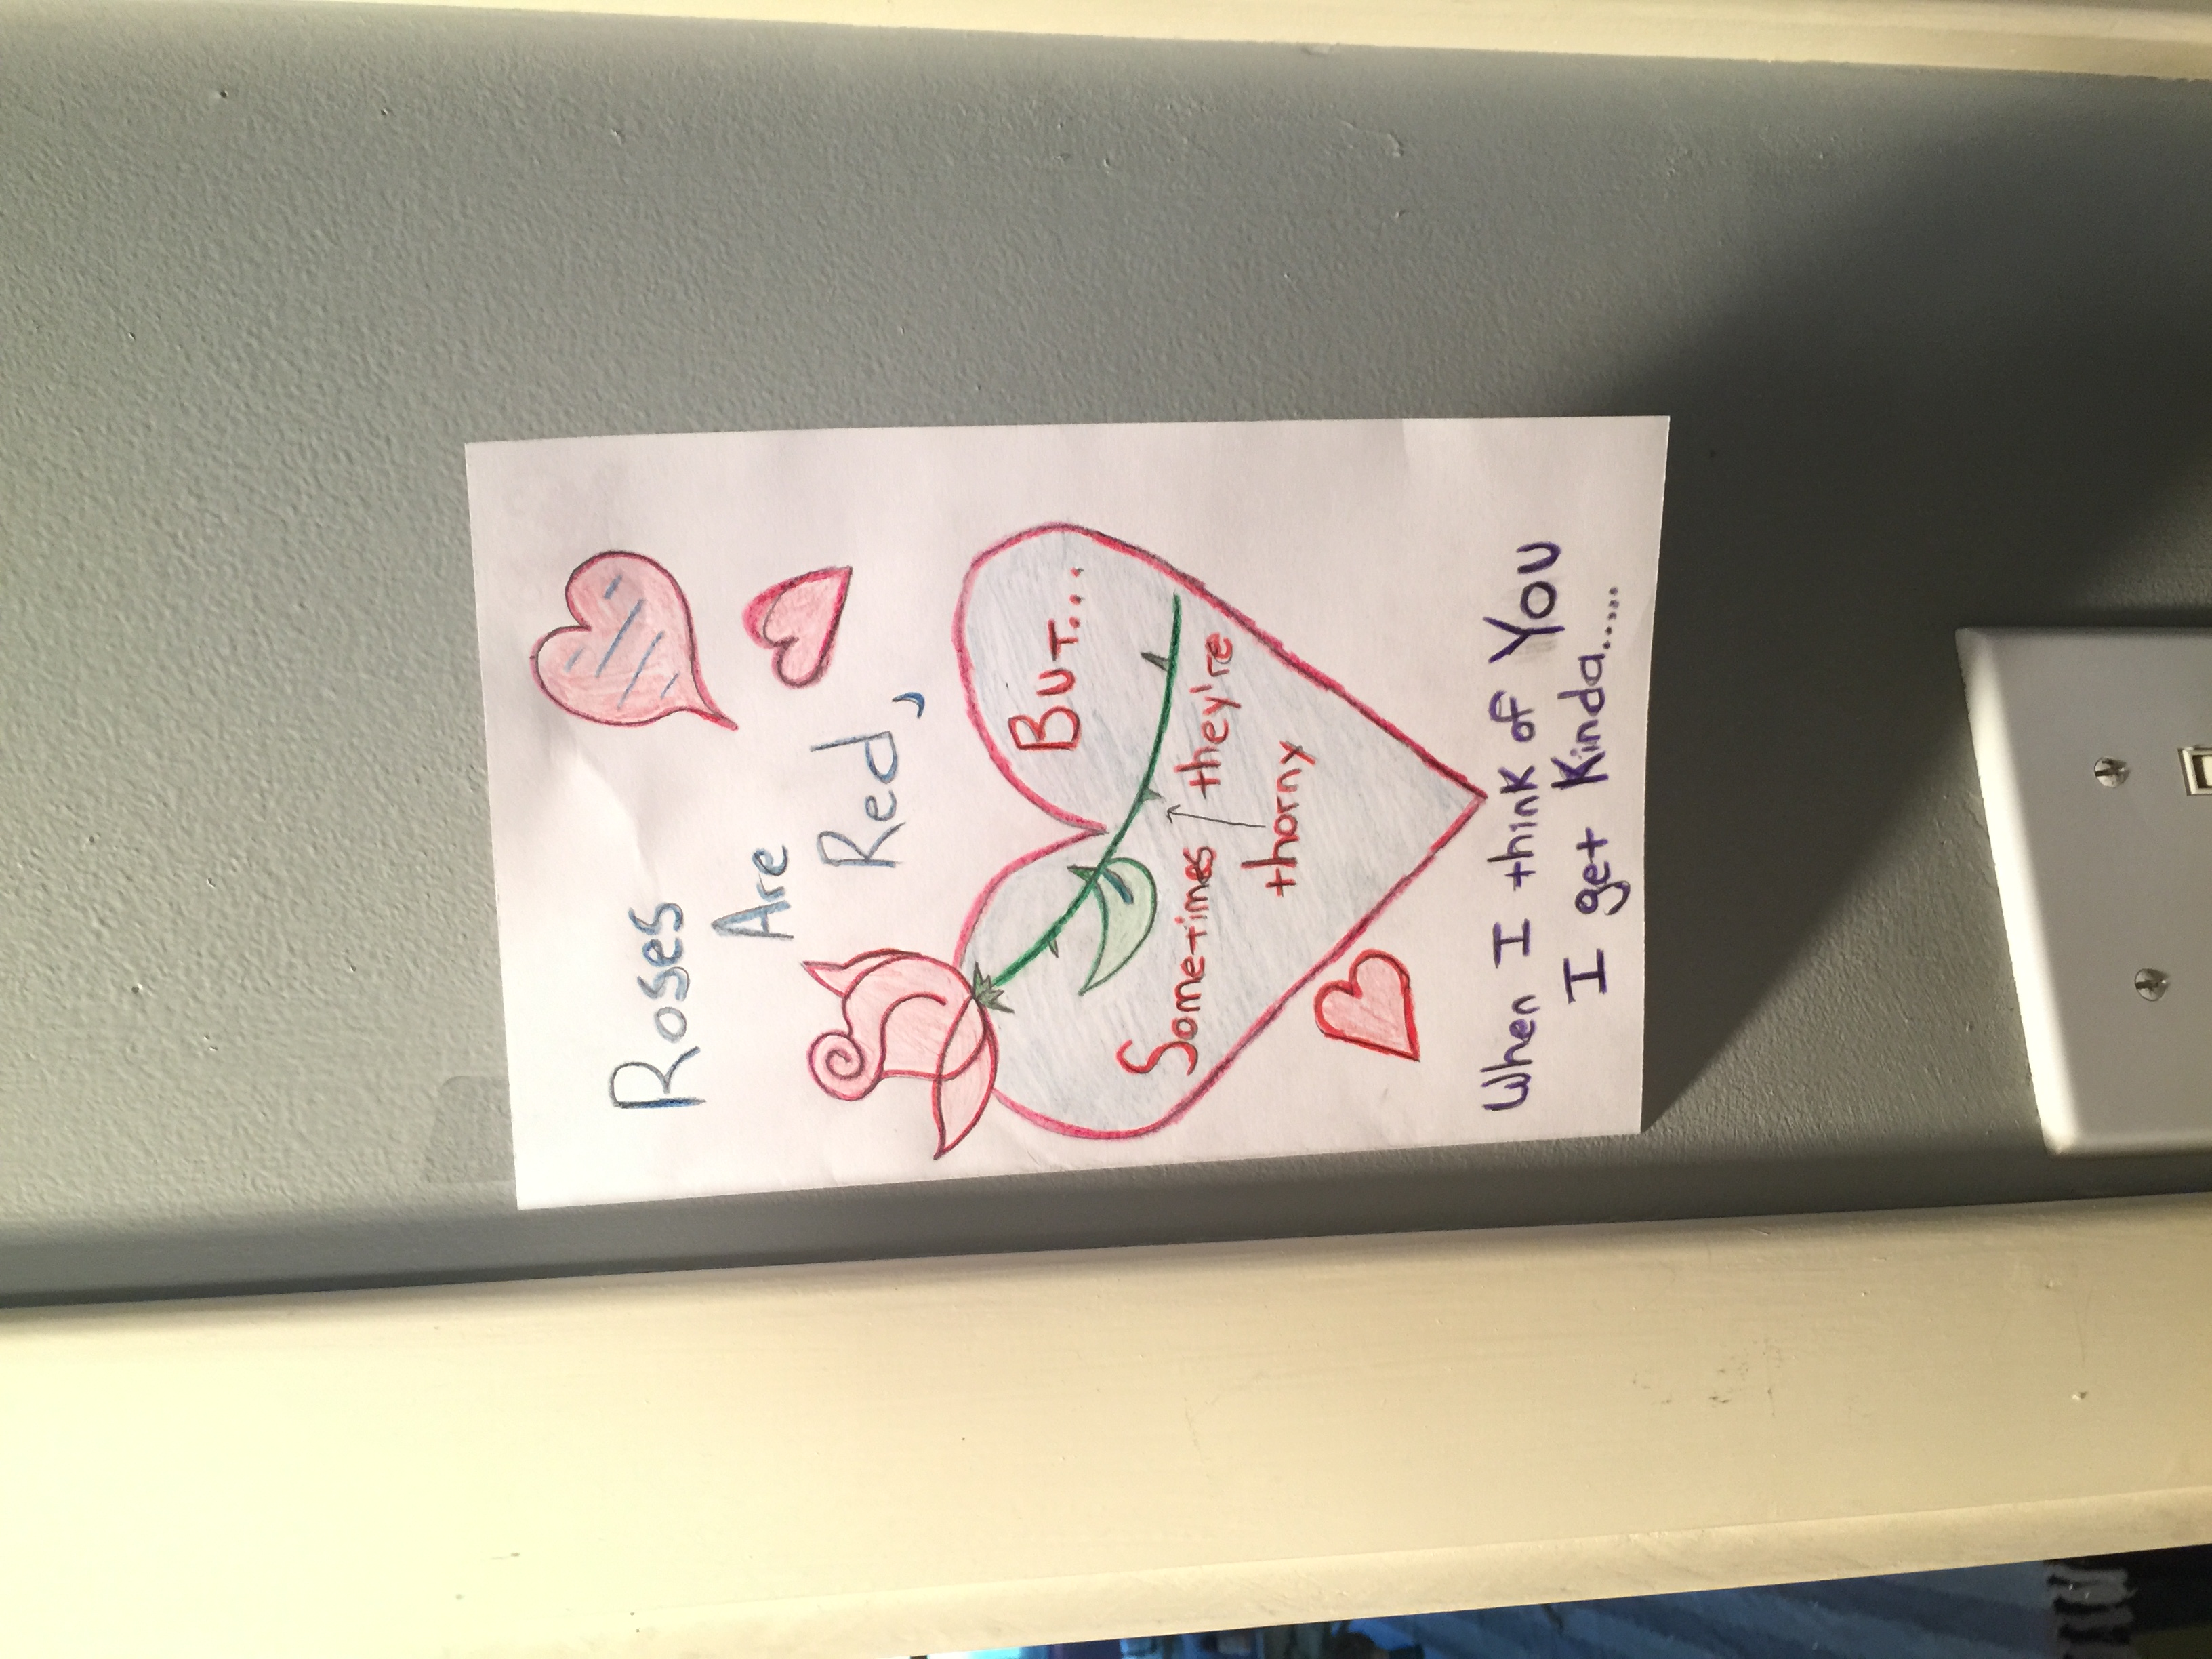 Roses
Are
Red,
But...
Sometimes they're
thorny
When I think of You
I get Kinda.....